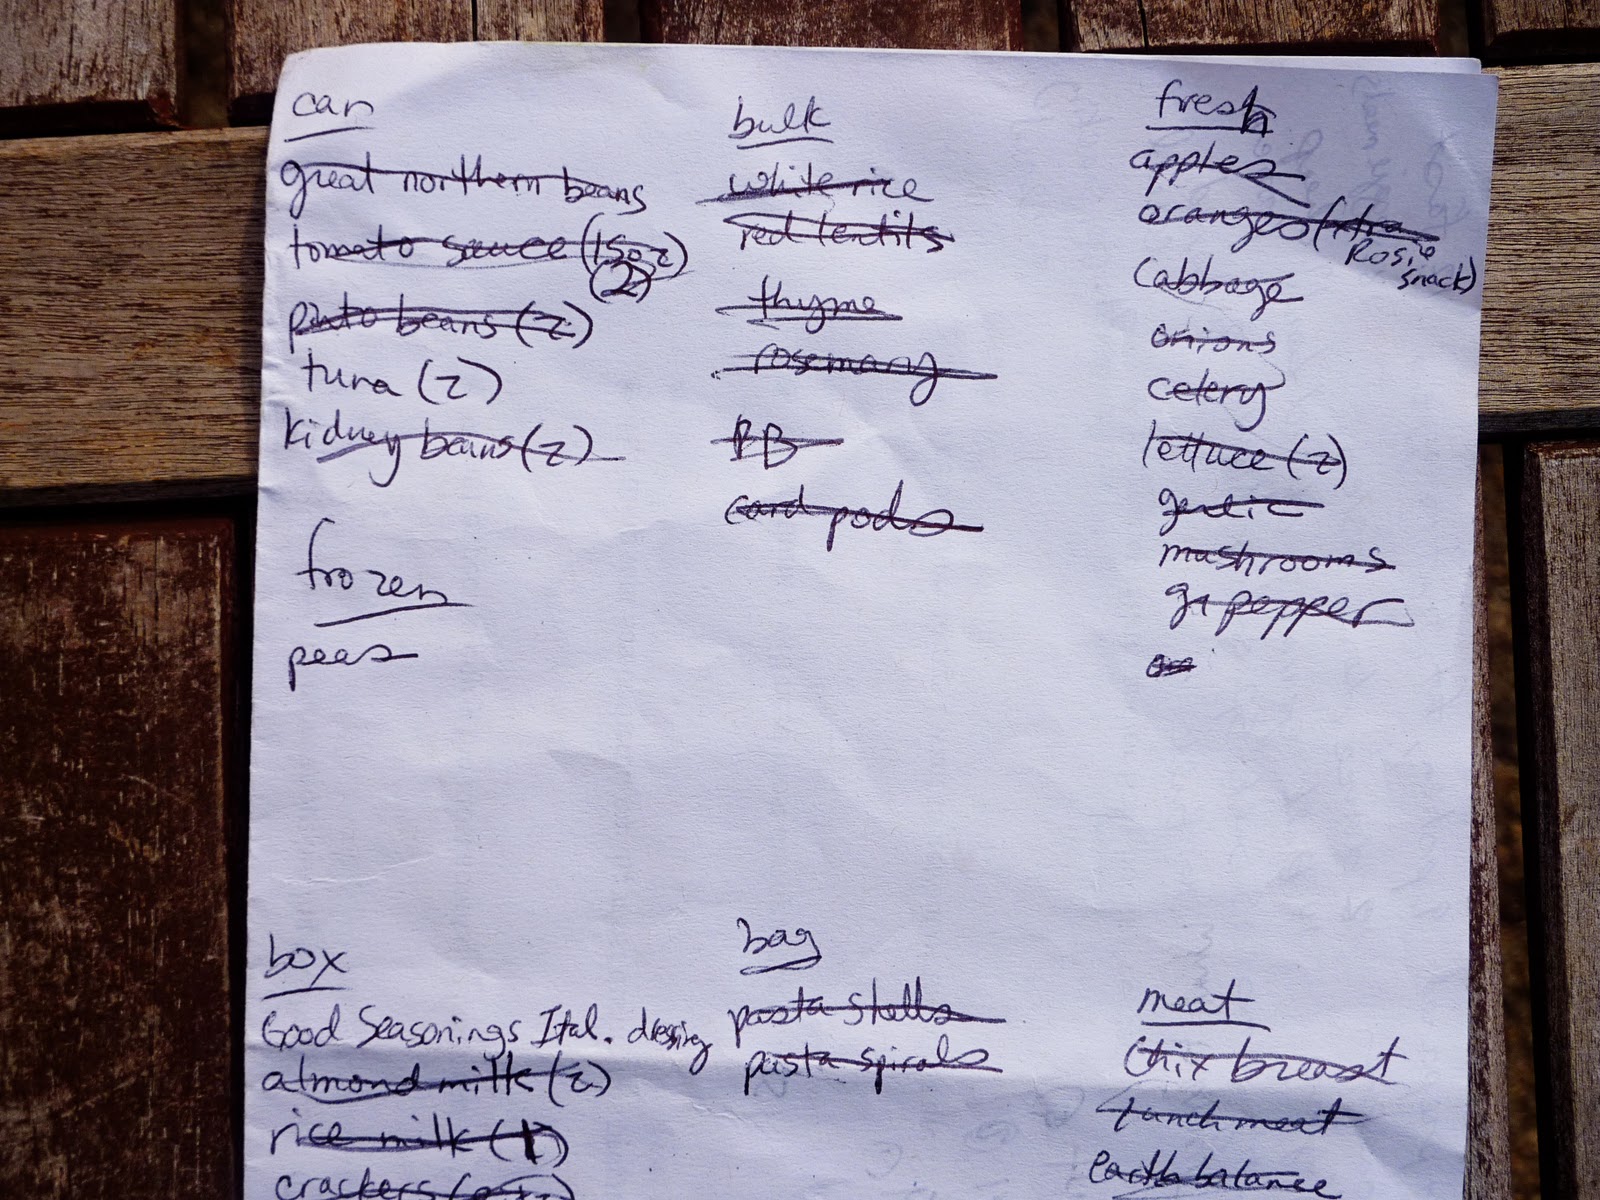 can
great northern beans
tomato sauce (15oz)
(2)
pinto beans (2)
tuna (2)
kidney beans (2)
frozen
peas
bulk
white rice
red lentils
thyme
rosemary
PB
card pods
fresh
apples
oranges (xtra
Rosie
snack)
cabbage
onions
celery
lettuce (2)
garlic
mushrooms
gr pepper
box
Good Seasonings Ital. dressing
almond milk (2)
rice milk (1)
crackers
bag
pasta shells
pasta spirals
meat
chix breast
lunch meat
earth balance